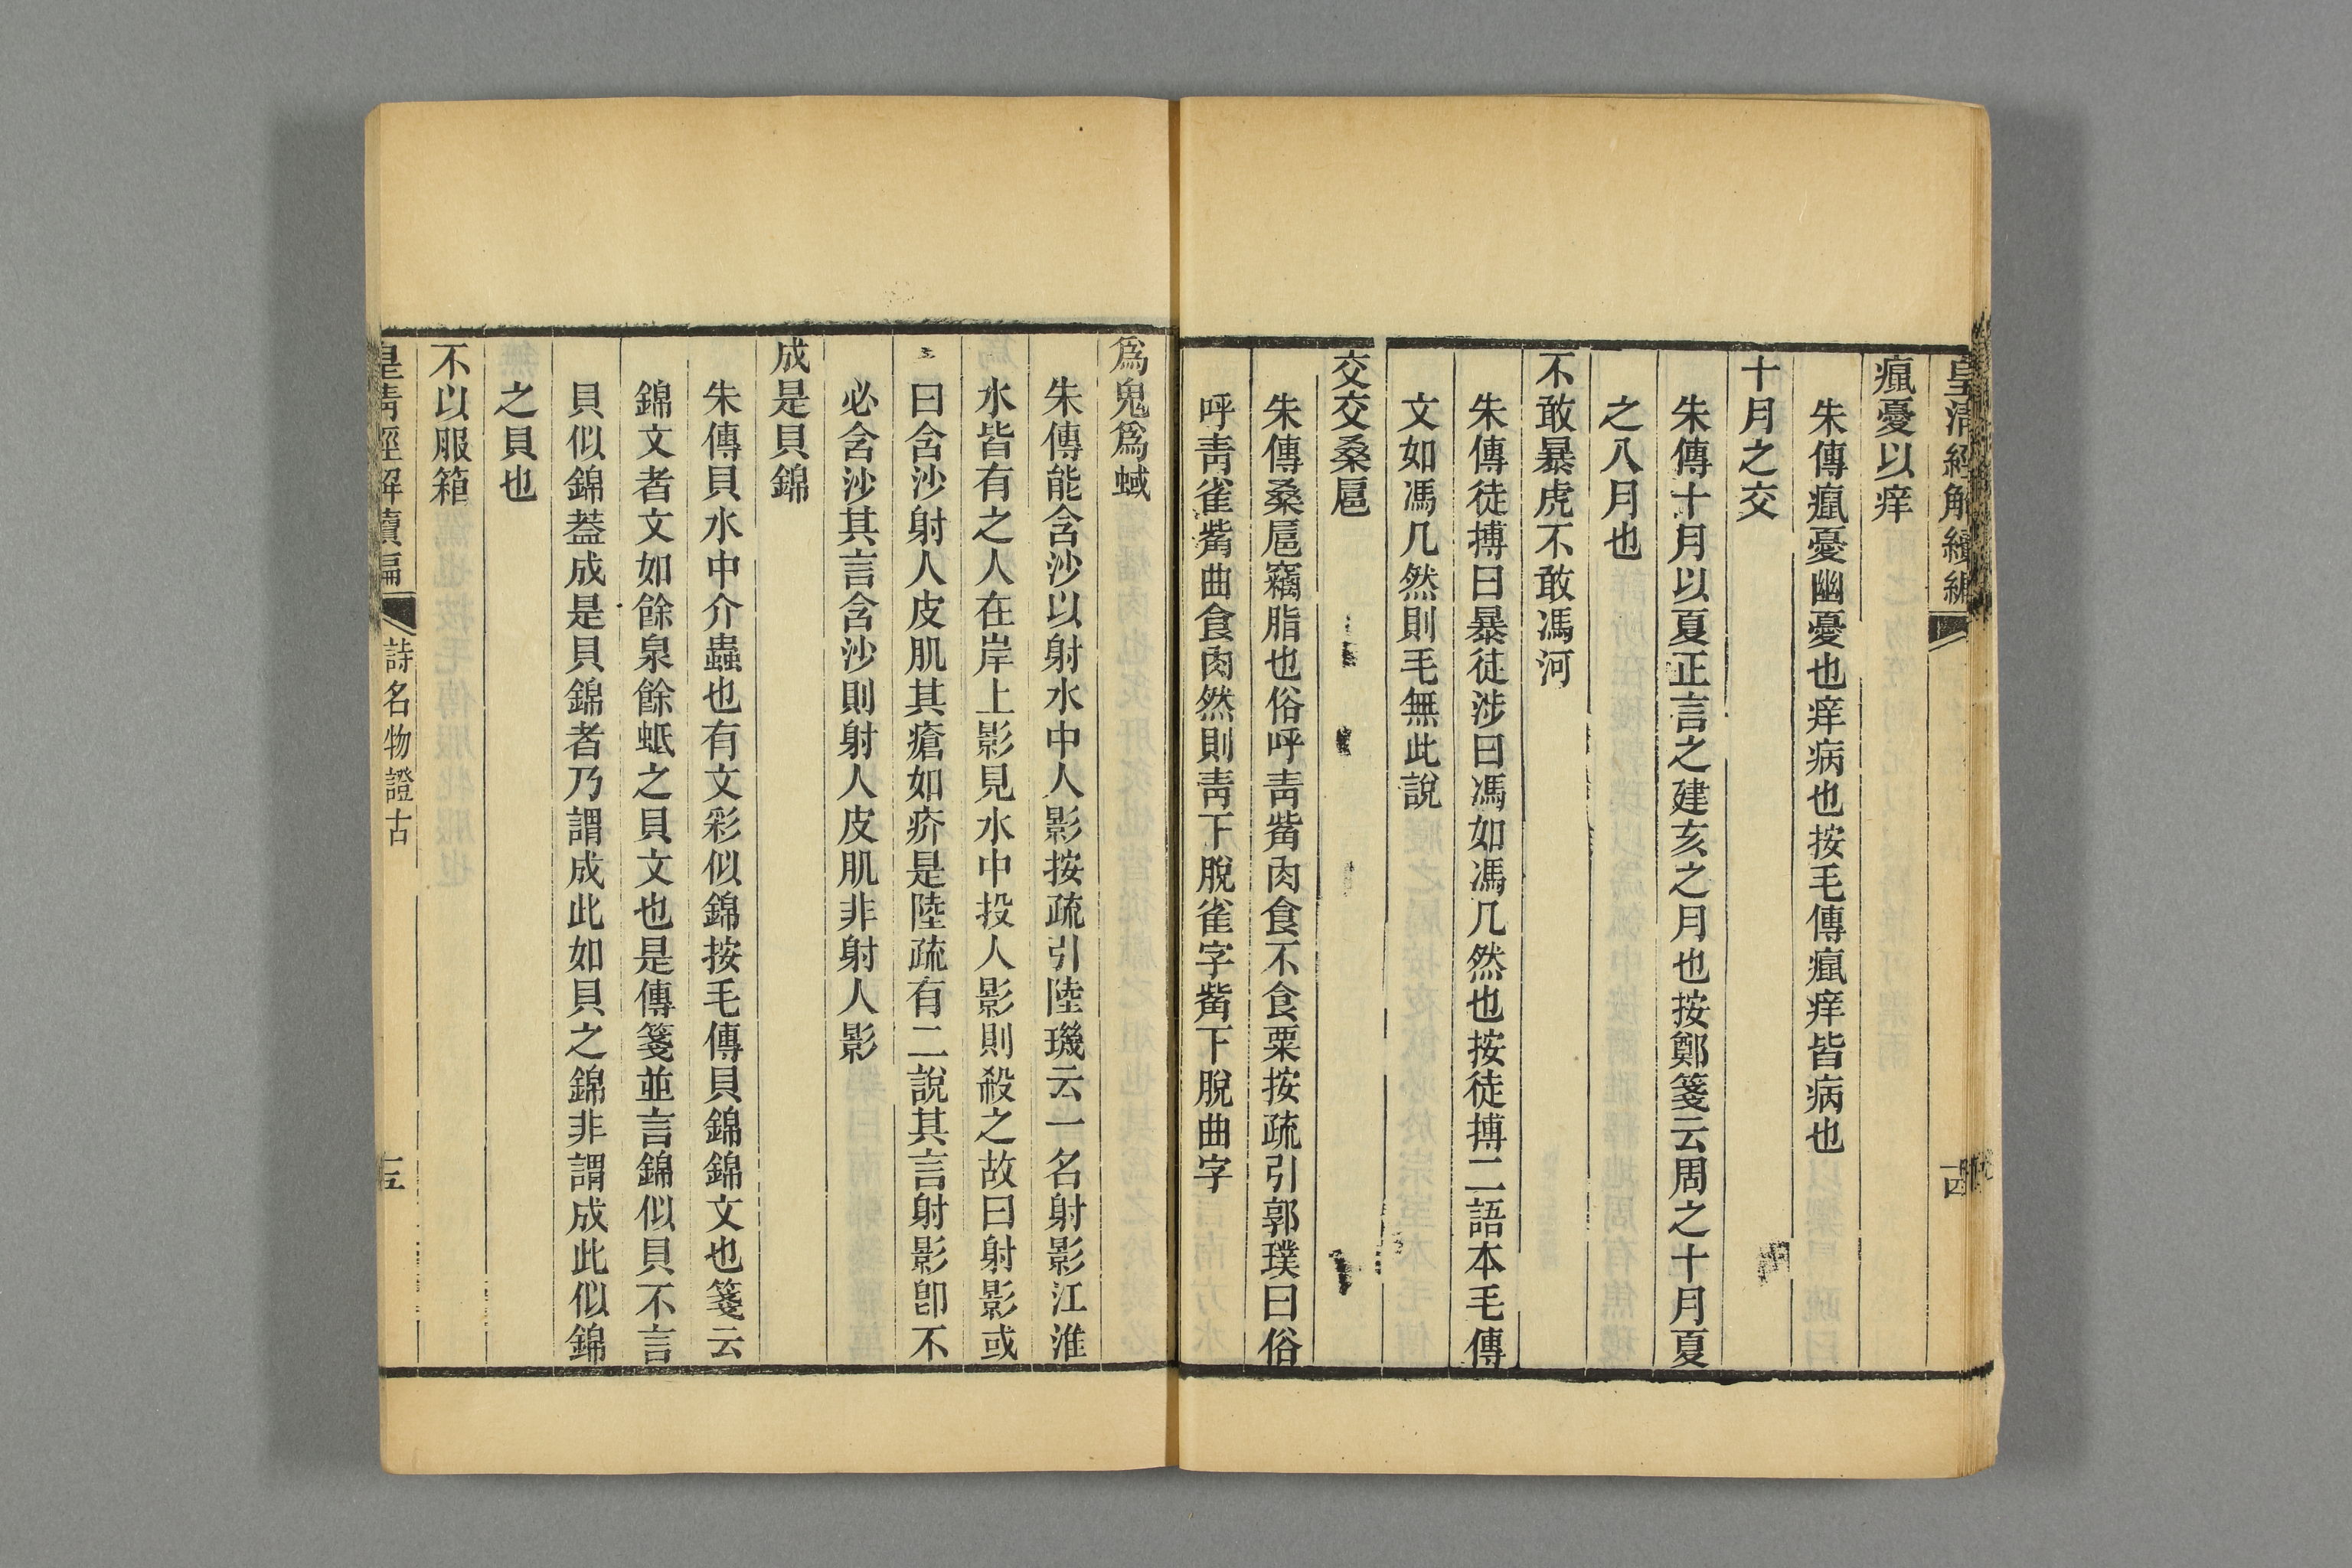 皇清經解續編
十四
癙憂以痒
朱傳癙憂幽憂也痒病也按毛傳癙痒皆病也
十月之交
朱傳十月以夏正言之建亥之月也按鄭箋云周之十月夏
之八月也
不敢暴虎不敢馮河
朱傳徒搏曰暴徒涉曰馮如馮几然也按徒搏二語本毛傳
文如馮几然則毛無此說
交交桑扈
朱傳桑扈竊脂也俗呼靑觜肉食不食粟按疏引郭璞曰俗
呼靑雀觜曲食肉然則靑下脫雀字觜下脫曲字
爲鬼爲蜮
朱傳能含沙以射水中人影按疏引陸璣云一名射影江淮
水皆有之人在岸上影見水中投人影則殺之故曰射影或
曰含沙射人皮肌其瘡如疥是陸疏有二說其言射影卽不
必含沙其言含沙則射人皮肌非射人影
成是貝錦
朱傳貝水中介蟲也有文彩似錦按毛傳貝錦錦文也箋云
錦文者文如餘泉餘蚔之貝文也是傳箋並言錦似貝不言
貝似錦葢成是貝錦者乃謂成此如貝之錦非謂成此似錦
之貝也
不以服箱
皇清經解續編
詩名物證古
十五